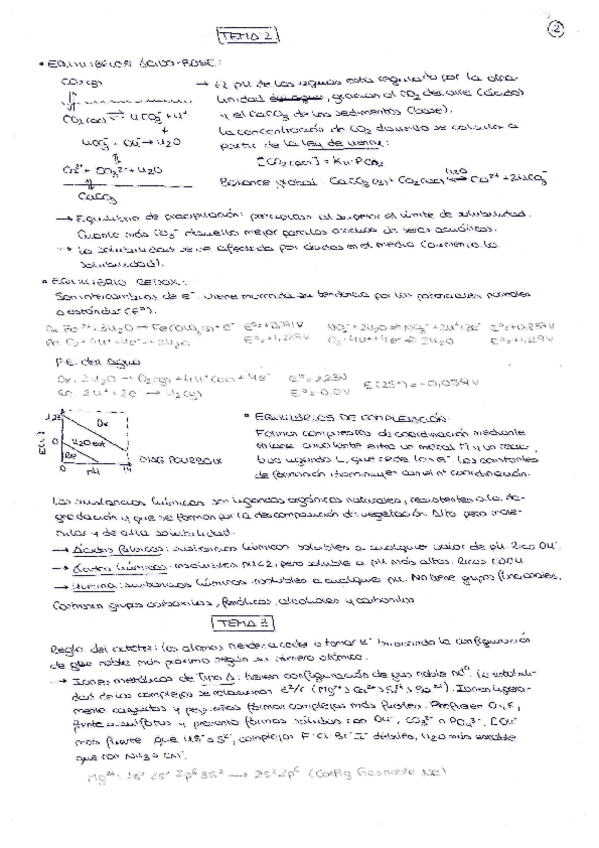 TEMA 2
2
• EQUILIBRIOS ÁCIDO-BASE:
CO2(g) → El pH de las aguas está regulado por la alca-
linidad gracias al CO2 del aire (ácido)
CO2(aq) ⇌ HCO3- + H+ y el CaCO3 de los sedimentos (base).
La concentración de CO2 disuelto se calcula a
HCO3- OH- → H2O partir de la Ley de Henry:
[CO2(aq)] = KH·PCO2
Ca2+ + CO3 2- + H2O Balance global: CaCO3(s) + CO2(aq) ⇌ H2O Ca2+ + 2HCO3-
CaCO3
→ Equilibrio de precipitación: precipitan al superar el límite de solubilidad.
Cuanto más CO3 2- disuelto mejor para los seres acuáticos.
→ La solubilidad se ve afectada por ácidos en el medio (aumenta la
solubilidad).
• EQUILIBRIO REDOX:
Son intercambios de e-. Viene marcada su tendencia por los potenciales normales
o estándar (Eº).
3H2O → Fe(OH)3(s) + e-
4H+ + 4e- → 2H2O
P.E. del agua
Ox: 2H2O → O2(g) + 4H+(aq) + 4e- Eº = 1,23V
2H+ + 2e- → H2(g) Eº = 0,0V
E(25º) = -0,059V
1,23
Ox
E(V)
H2O est
Re
0
0 pH 14
DIAG POURBAIX
• EQUILIBRIOS DE COMPLEJACIÓN
Forman compuestos de coordinación mediante
enlace covalente entre un metal M y un
ligando L, que cede los e-. Las constantes
de formación disminuyen con el nº coordinación.
Las sustancias húmicas son ligandos orgánicos naturales, resistentes a la de-
gradación y que se forman por la descomposición de vegetación. Alto peso mole-
cular y de alta solubilidad.
→ Ácidos fúlvicos: sustancias húmicas solubles a cualquier valor de pH. Ricos OH-.
→ Ácidos húmicos: insolubles pH<2, pero soluble a pH más altos. Ricos COOH
→ Humina: sustancias húmicas insolubles a cualquier pH. No tiene grupos funcionales.
Contienen grupos carboxílicos, fenólicos, alcoholes y carbonilos
TEMA 3
Regla del octeto: los átomos tienden a ceder o tomar e- buscando la configuración
de gas noble más próximo según su número atómico.
→ Iones metálicos de Tipo A: tienen configuración de gas noble. La estabili-
dad de los complejos se relaciona z²/r (Mg2+ > Ca2+ > Sr2+ > Ba2+). Iones
cargados y pequeños forman complejos más fuertes. Prefieren O, F,
y forman sólidos con OH-, CO3 2- o PO4 3-. COO-
más fuerte que HS- o S2-, complejos F- Cl- Br- I- débiles, H2O más estable
que con NH3 o CN-.
Mg2+: 1s2 2s2 2p6 3s2 → 2s2 2p6 (Config Gas noble Ne)